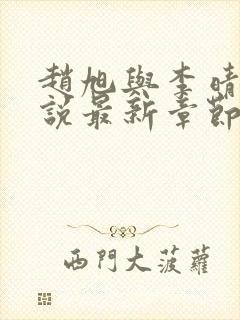 趙旭與李晴
說最新章節
西門大菠蘿